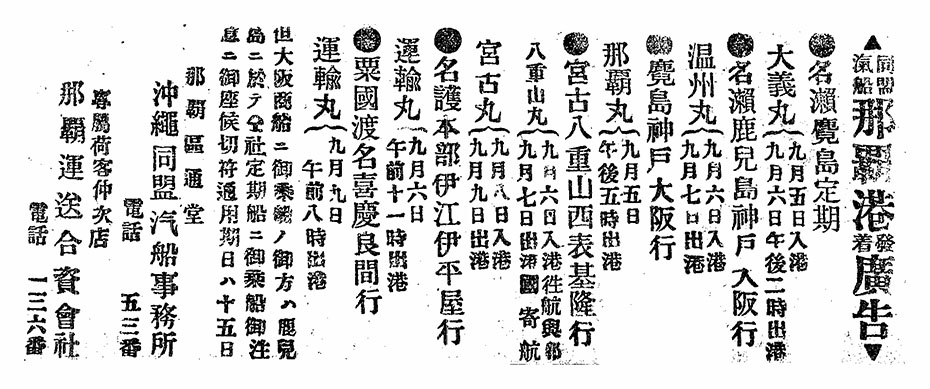 ▲同盟汽船那覇港發着廣告▼
●名瀨麑島定期
大義丸 九月五日入港
九月六日午後二時出港
●名瀨鹿兒島神戸大阪行
温州丸 九月六日入港
九月七日出港
●麑島神戸大阪行
那覇丸 九月五日
午後五時出港
●宮古八重山西表基隆行
八重山丸 九月六日入港往航與那
九月七日出港國寄航
宮古丸 九月八日入港
九月九日出港
●名護本部伊江伊平屋行
運輸丸 九月六日
午前十一時出港
●粟國渡名喜慶良間行
運輸丸 九月九日
午前八時出港
但大阪商船ニ御乘ノ御方ハ鹿兒
島ニ於テ仝社定期船ニ御乘船御注
意ニ御座候切符通用期日ハ十五日
那覇區通堂
沖繩同盟汽船事務所
電話 五三番
專屬荷客仲次店
那覇運送合資會社
電話 一三六番